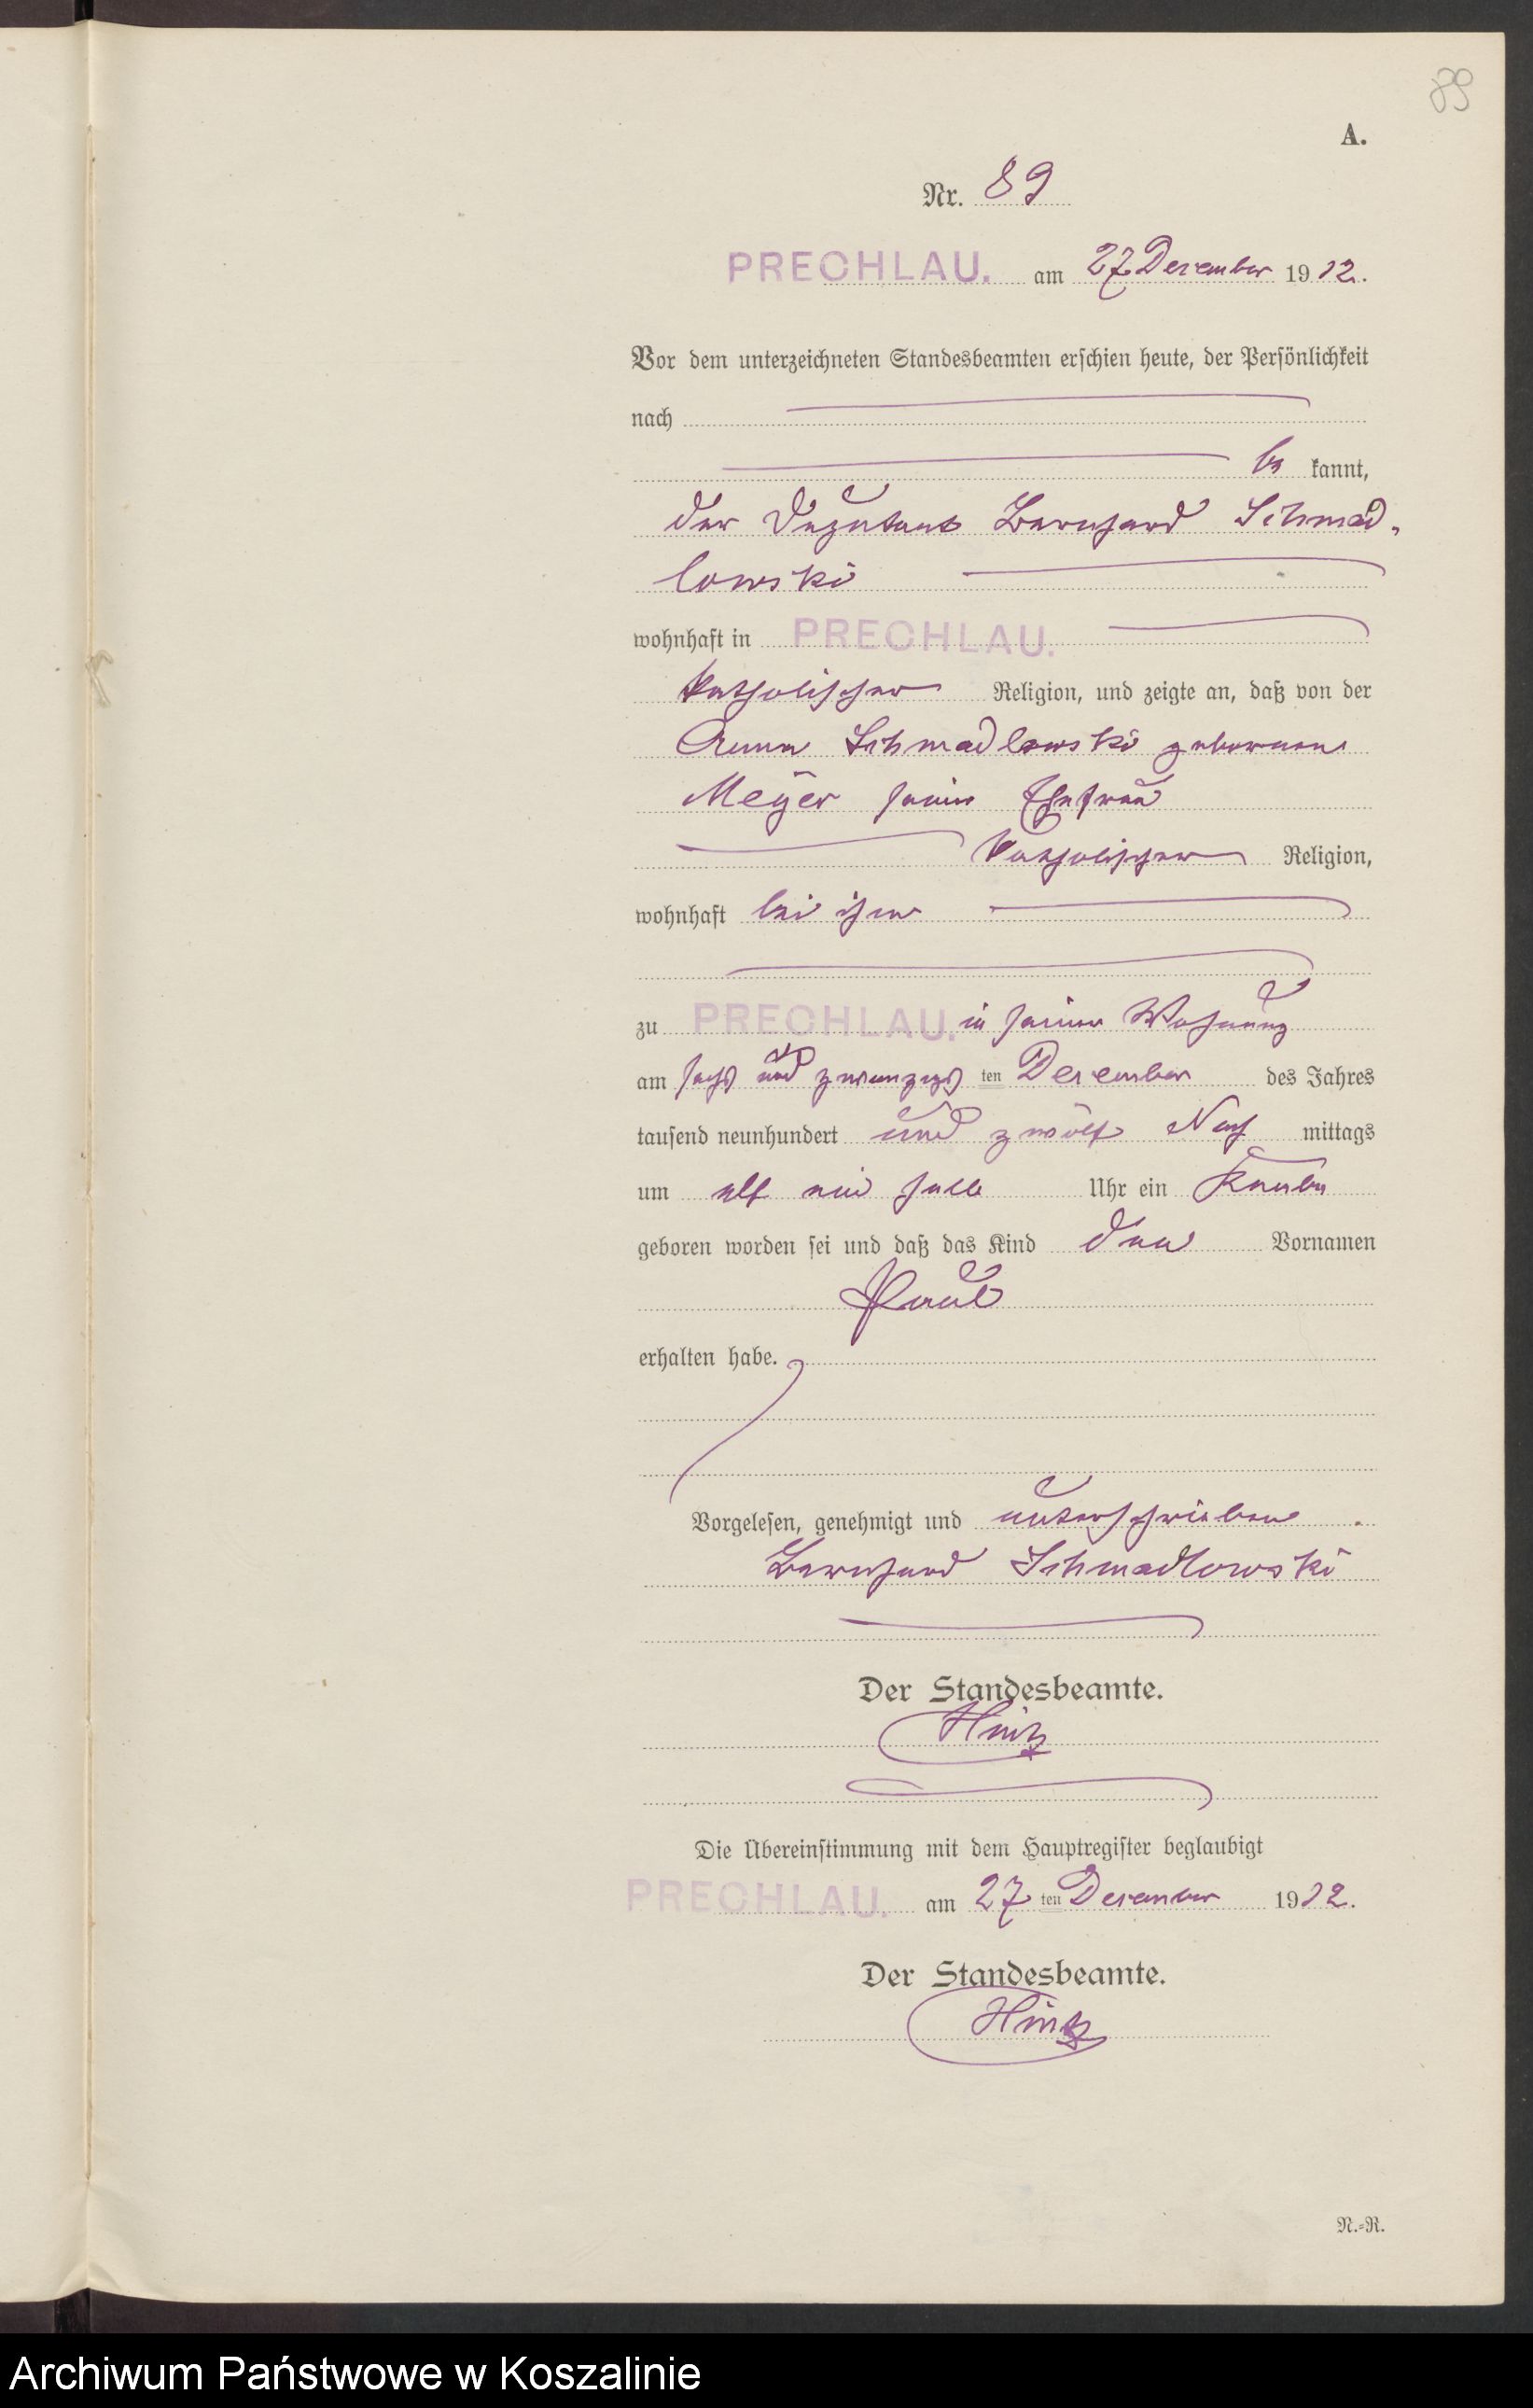 89
A.
Nr. 89
PRECHLAU. am 27. Dezember 1912.
Vor dem unterzeichneten Standesbeamten erschien heute, der Persönlichkeit
nach
be kannt,
der Deputant Bernhard Schmad-
lowski
wohnhaft in PRECHLAU.
katholischer Religion, und zeigte an, daß von der
Anna Schmadlowski geborenen
Meyer seine Ehefrau
katholischer Religion,
wohnhaft bei ihm
zu PRECHLAU. in seiner Wohnung
am sechs und zwanzigs ten Dezember des Jahres
tausend neunhundert und zwölf Nach mittags
um elf ein halb Uhr ein Knabe
geboren worden sei und daß das Kind den Vornamen
Paul
erhalten habe.
Vorgelesen, genehmigt und unterschrieben.
Bernhard Schmadlowski
Der Standesbeamte.
Hintz
Die Übereinstimmung mit dem Hauptregister beglaubigt
PRECHLAU. am 27 ten Dezember 1912.
Der Standesbeamte.
Hintz
N.-R.
Archiwum Państwowe w Koszalinie